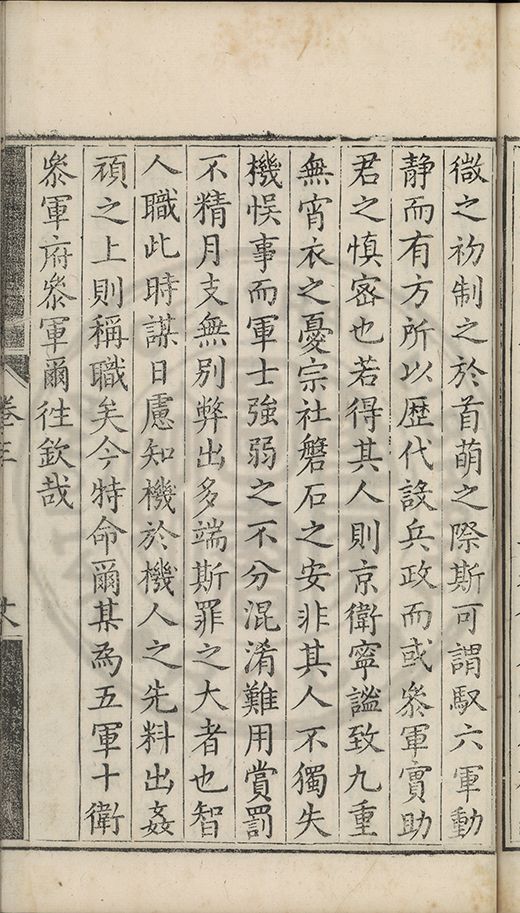 微之初制之於首萌之際斯可謂馭六軍動
静而有方所以歴代設兵政而或叅軍實助
君之慎宻也若得其人則京衛寧謐致九重
無宵衣之憂宗社磐石之安非其人不獨失
機悮事而軍士強弱之不分混淆難用賞罰
不精月支無别弊出多端斯罪之大者也智
人職此時謀日慮知機於機人之先料出姦
頑之上則稱職矣今特命爾某為五軍十衛
叅軍府叅軍爾徃欽哉
卷三